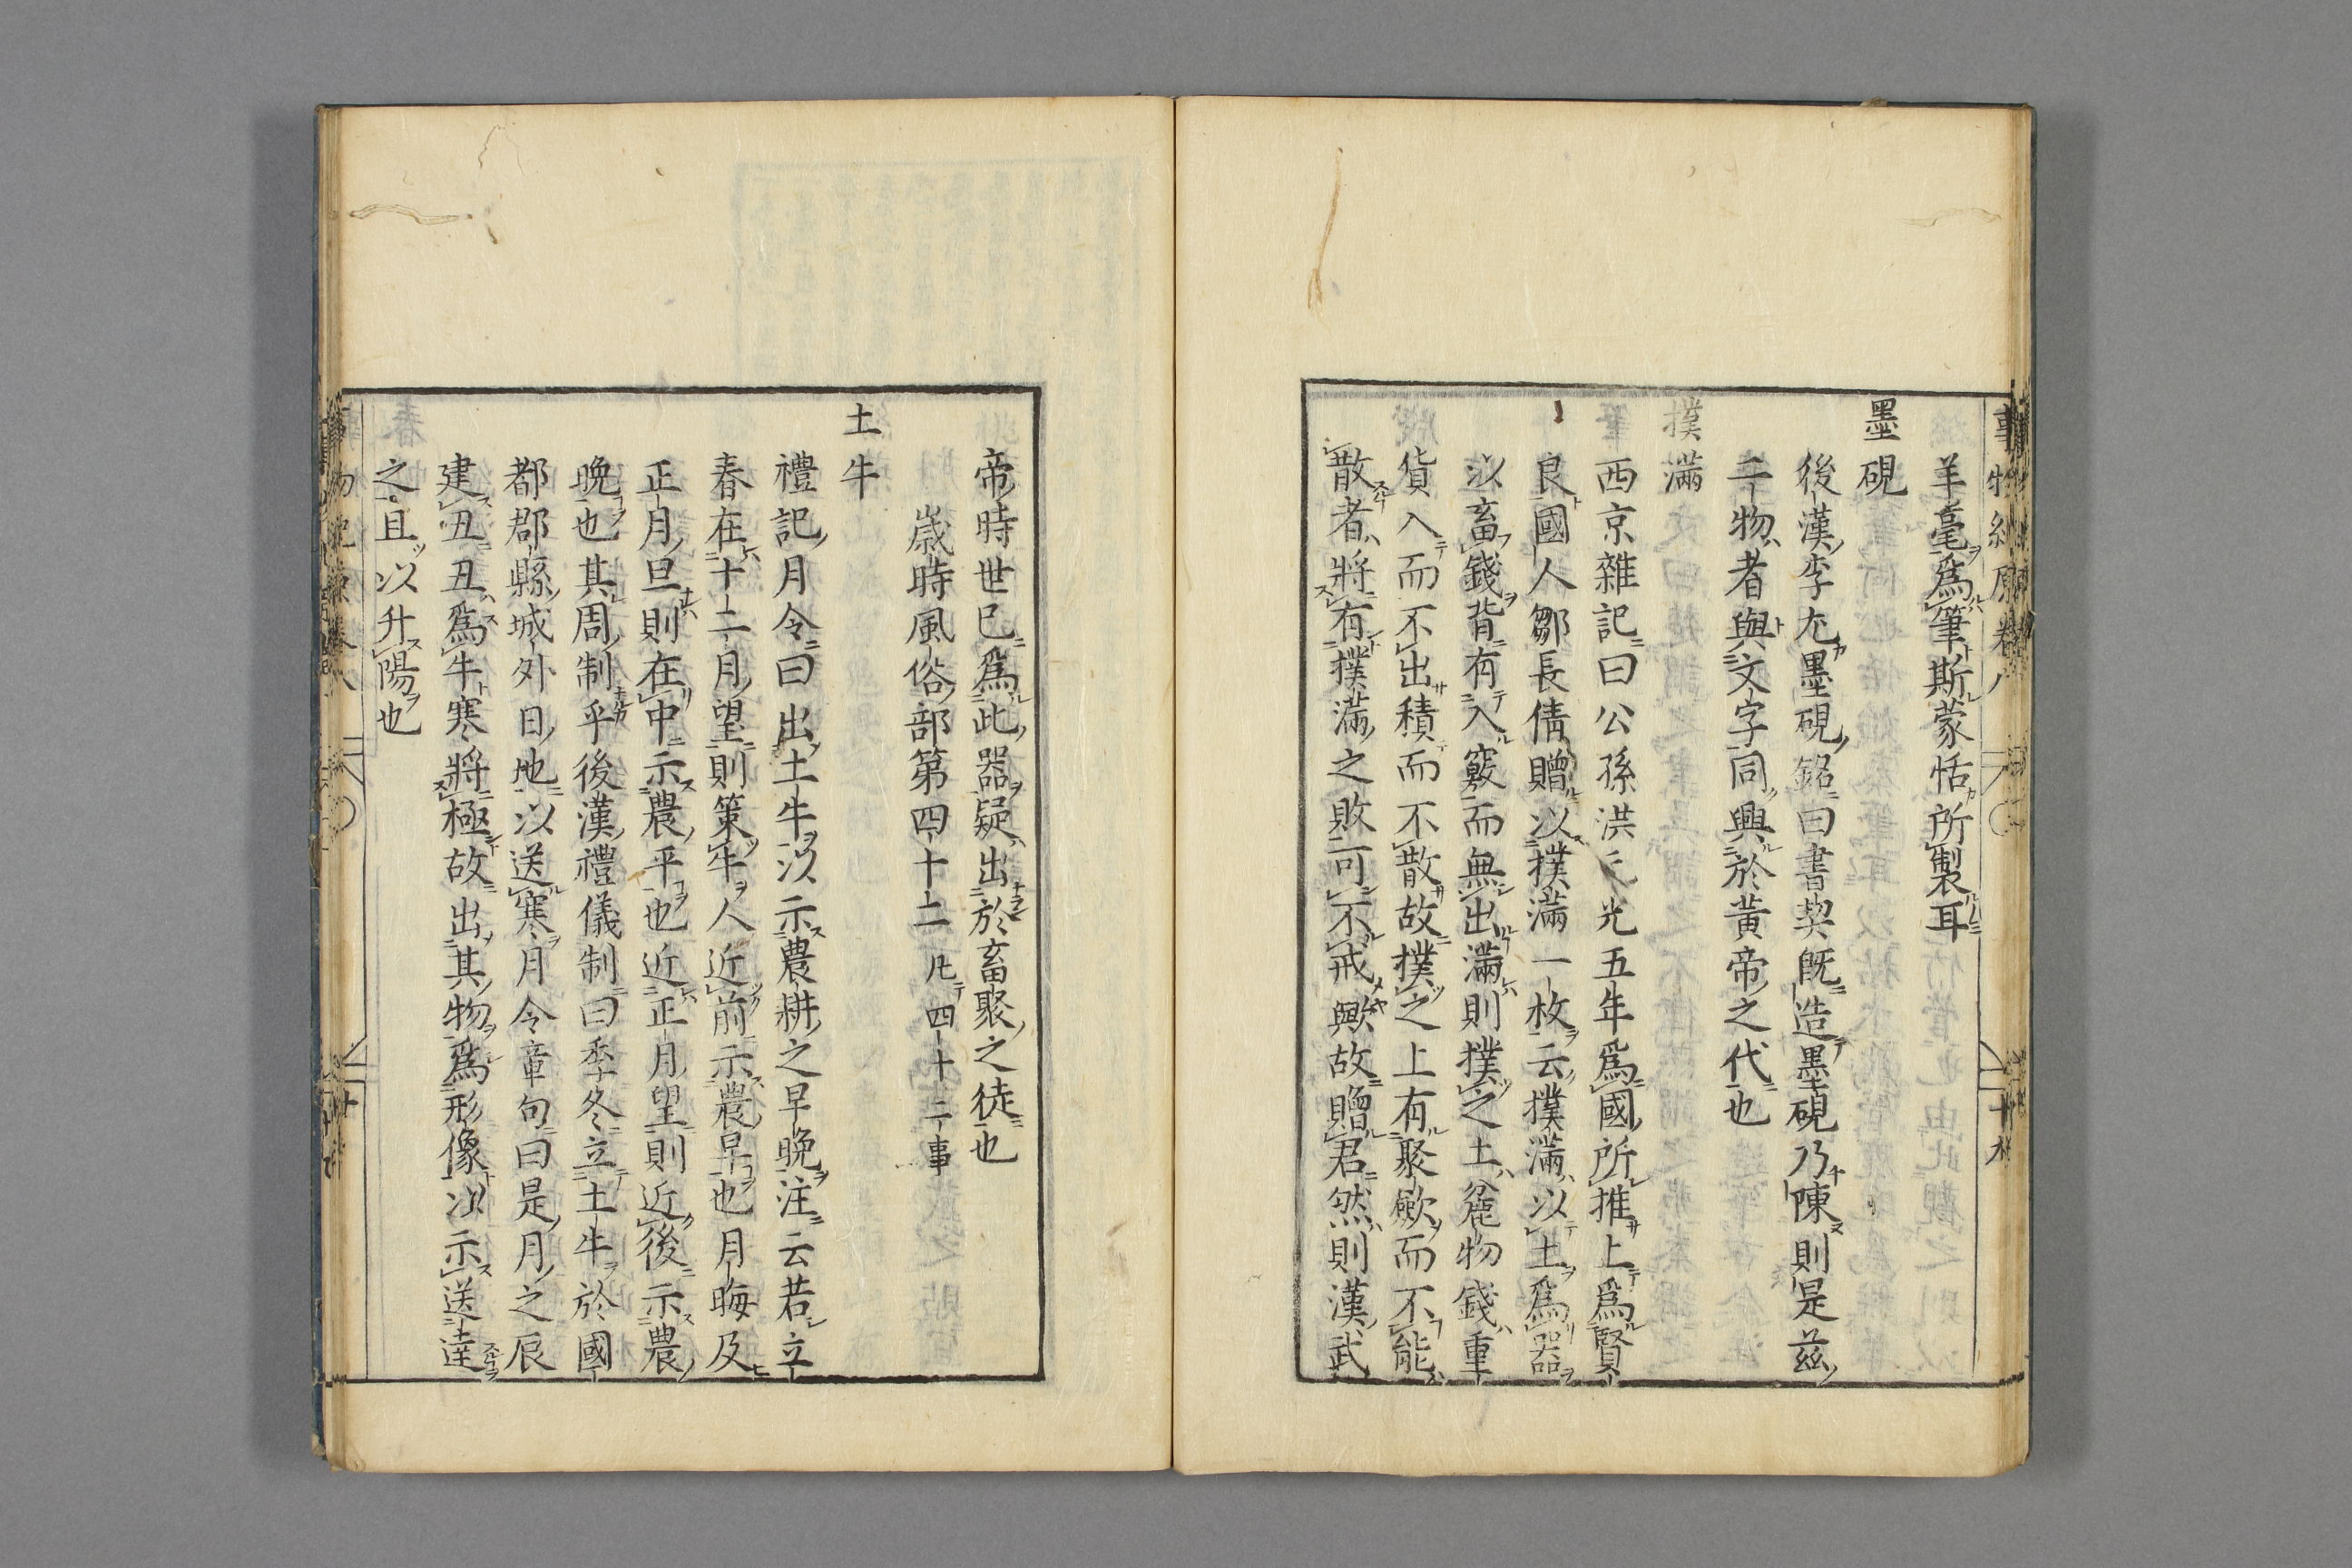 事物紀原卷八
羊毫爲筆斯蒙恬所製耳
墨硯
後漢李尤墨硯銘曰書契既造墨硯乃陳則是茲
二物者與文字同興於黃帝之代也
撲滿
西京雜記曰公孫洪元光五年爲國所推上爲賢
良國人鄒長倩贈以撲滿一枚云撲滿以土爲器
以畜錢背有入竅而無出滿則撲之土麄物錢重
貨入而不出積而不散故撲之上有聚歛而不能
散者將有撲滿之敗可不戒歟故贈君然則漢武
帝時世已爲此器疑出於畜聚之徒也
歳時風俗部第四十二 凡四十二事
土牛
禮記月令曰出土牛以示農耕之早晚注云若立
春在十二月望則策牛人近前示農早也月晦及
正月旦則在中示農平也近正月望則近後示農
晚也其周制乎後漢禮儀制曰季冬立土牛於國
都郡縣城外日地以送寒月令章句曰是月之辰
建丑丑爲牛寒將極故出其物爲形像以示送達
之且以升陽也